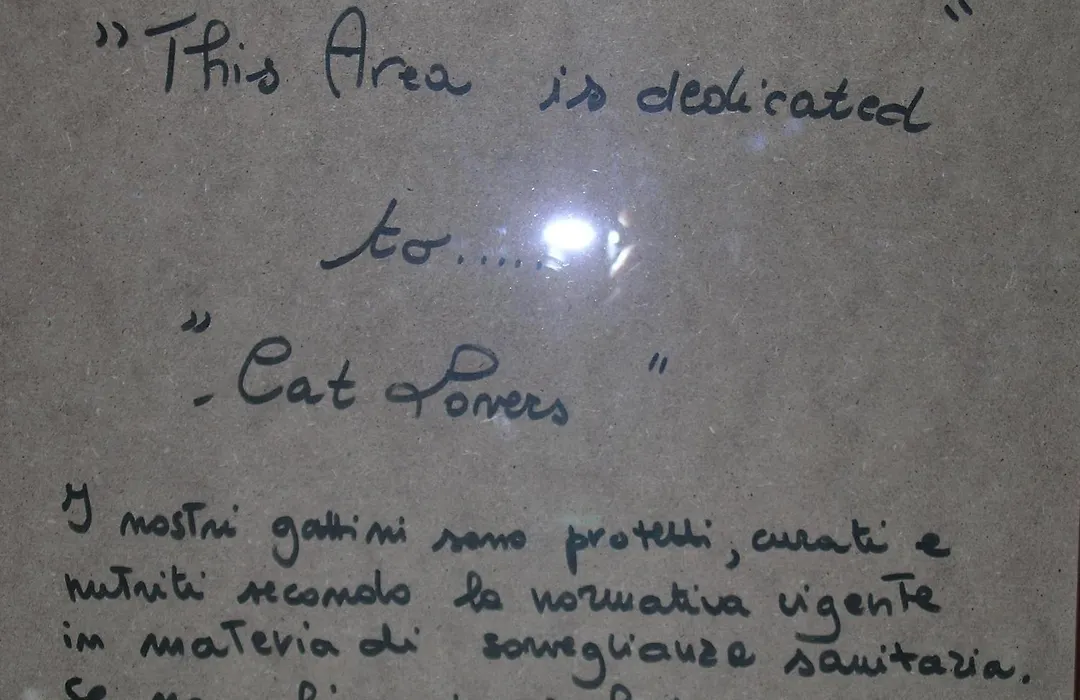 "This Area is dedicated "
to.....
"
- Cat Lovers "
I nostri gattini sono protetti, curati e
nutriti secondo la normativa vigente
in materia di sorveglianza sanitaria.
Se